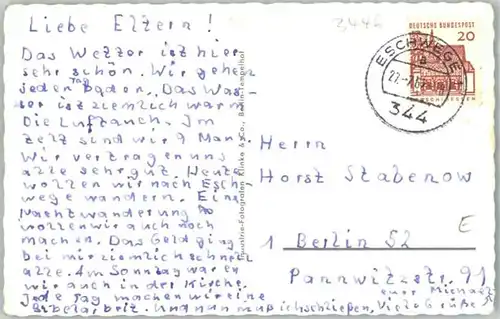 Liebe Eltern!
Das Wetter ist hier
sehr schön. Wir gehen
jeden Tag Baden. Das Was-
ser ist ziemlich warm
Die Luft auch. Im
Zelt sind wir 9 Mann.
Wir vertragen uns
alle sehr gut. Heute
wollen wir nach Esch
wege wandern. Eine
Nachtwanderung
wollen wir auch noch
machen. Das Geld ging
bei mir ziemlich schnell
alle. Am Sonntag waren
wir auch in der Kirche.
Jede Tag machen wir eine
Bibelarbeit. Und nun muß ich schließen, Viele Grüße
euer Michael
3446
DEUTSCHE BUNDESPOST
20
ESCHWEGE
a
344
Industrie-Fotografen Klinke & Co., Berlin-Tempelhof
Herrn
Horst Stabenow
E
1 Berlin 52
Pannwitzstr. 91